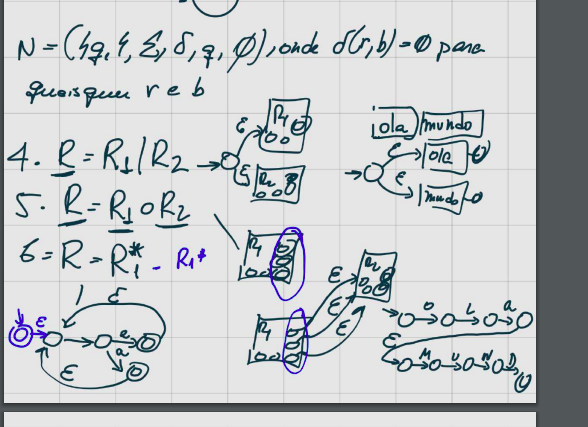 N = ({q}, Σ, δ, q, ∅), onde δ(r,b) = ∅ para
quaisquer r e b
4. R = R1 | R2
ε
ε
R1
R2
ola mundo
ε
ε
ola
mundo
5. R = R1 o R2
6 = R = R1* - R1+
R1
R1
ε
ε
ε
R2
ε
ε
a
a
ε
O L A
ε
M U N D O